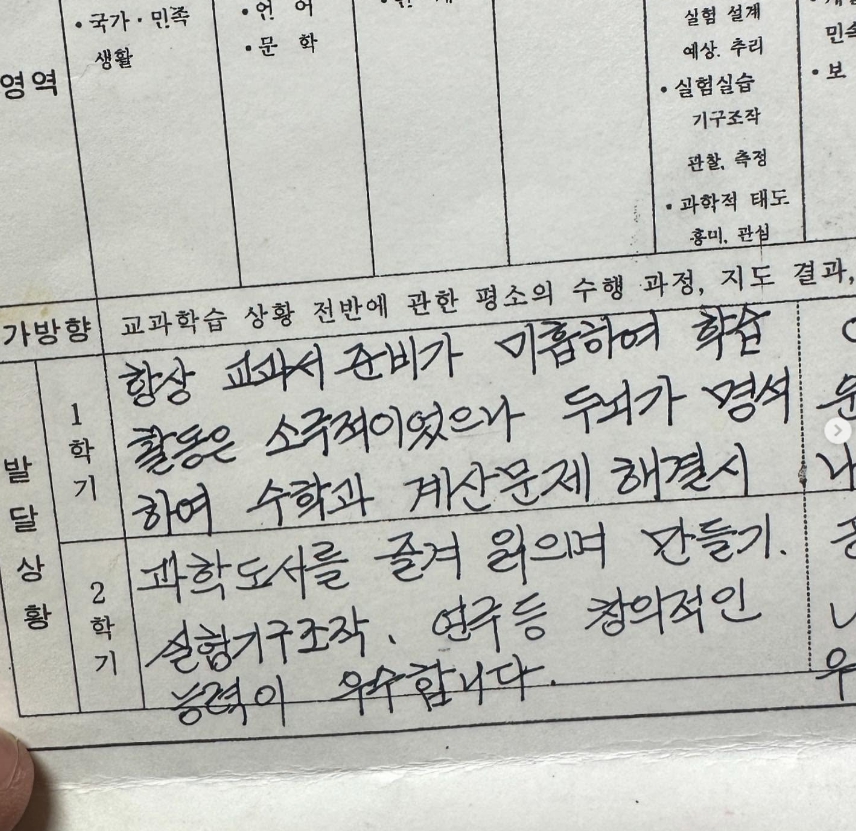 영역
• 국가 · 민족
생활
• 언 어
• 문 학
실험 설계
예상. 추리
• 실험실습
기구조작
관찰, 측정
• 과학적 태도
흥미, 관심
• 보
가방향
교과학습 상황 전반에 관한 평소의 수행 과정, 지도 결과,
발달상황
1학기
항상 교과서 준비가 미흡하여 학습
활동은 소극적이었으나 두뇌가 명석
하여 수학과 계산문제 해결시
2학기
과학도서를 즐겨 읽으며 만들기.
실험기구조작, 연구등 창의적인
능력이 우수합니다.